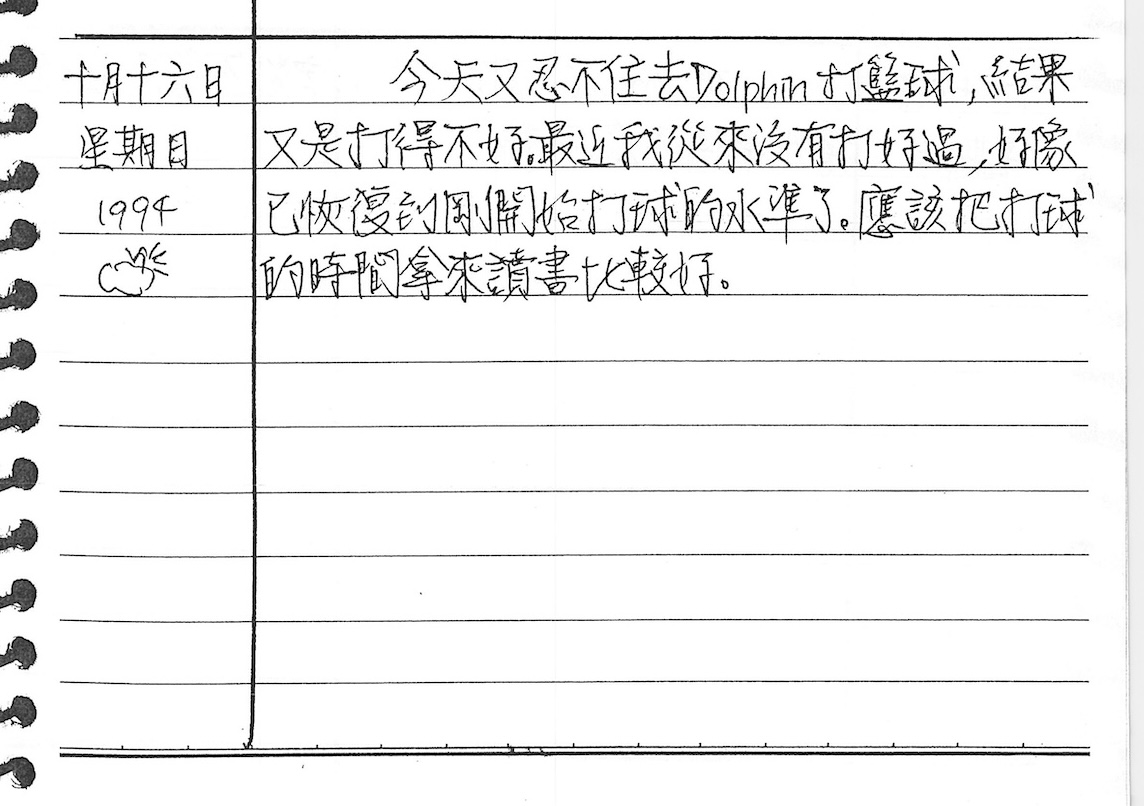 十月十六日
星期日
1994
今天又忍不住去Dolphin打籃球,結果
又是打得不好。最近我從來沒有打好過,好像
已恢復到剛開始打球的水準了。應該把打球
的時間拿來讀書比較好。